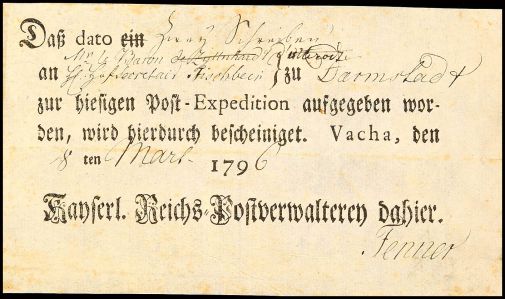 Daß dato ein Zwey Schreiben
Mr le Baron
an H. Hofsecretair Fischbein zu Darmstadt
zur hiesigen Post-Expedition aufgegeben wor-
den, wird hierdurch bescheiniget. Vacha, den
8 ten Mart. 1796
Kayserl. Reichs-Postverwalterey dahier.
Fenner